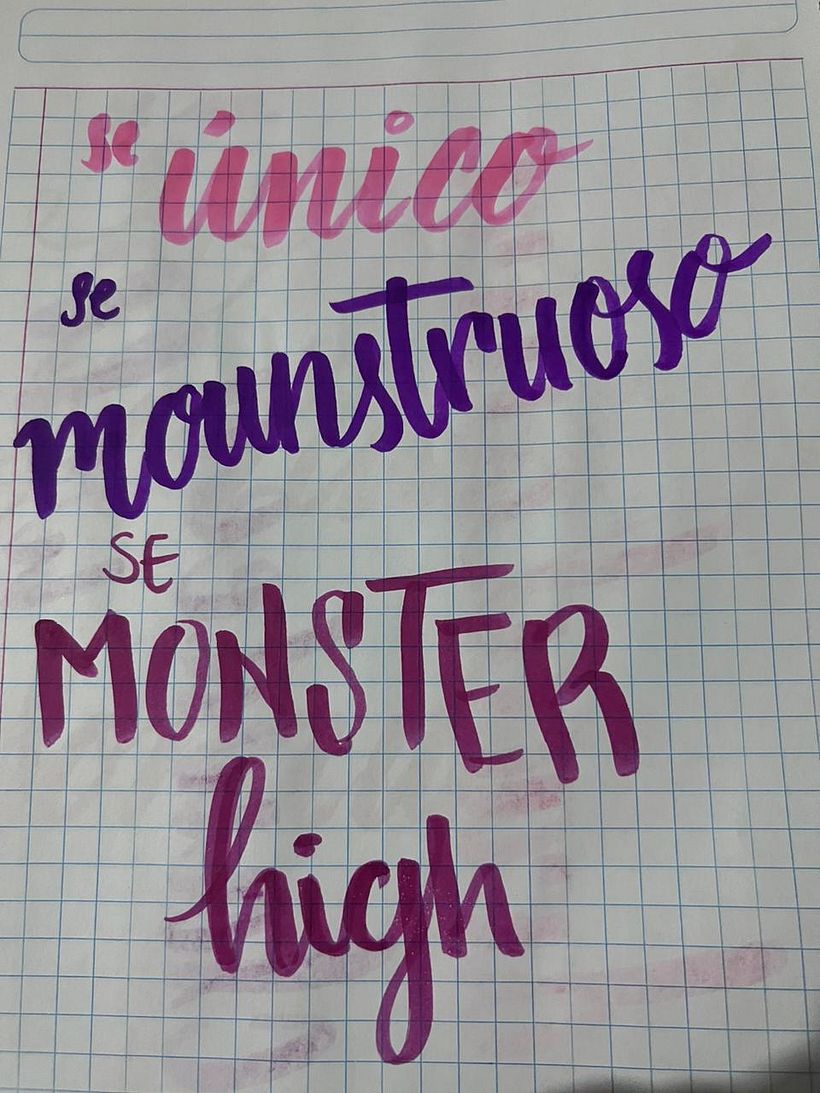 se único
se
mounstruoso
SE
MONSTER
high